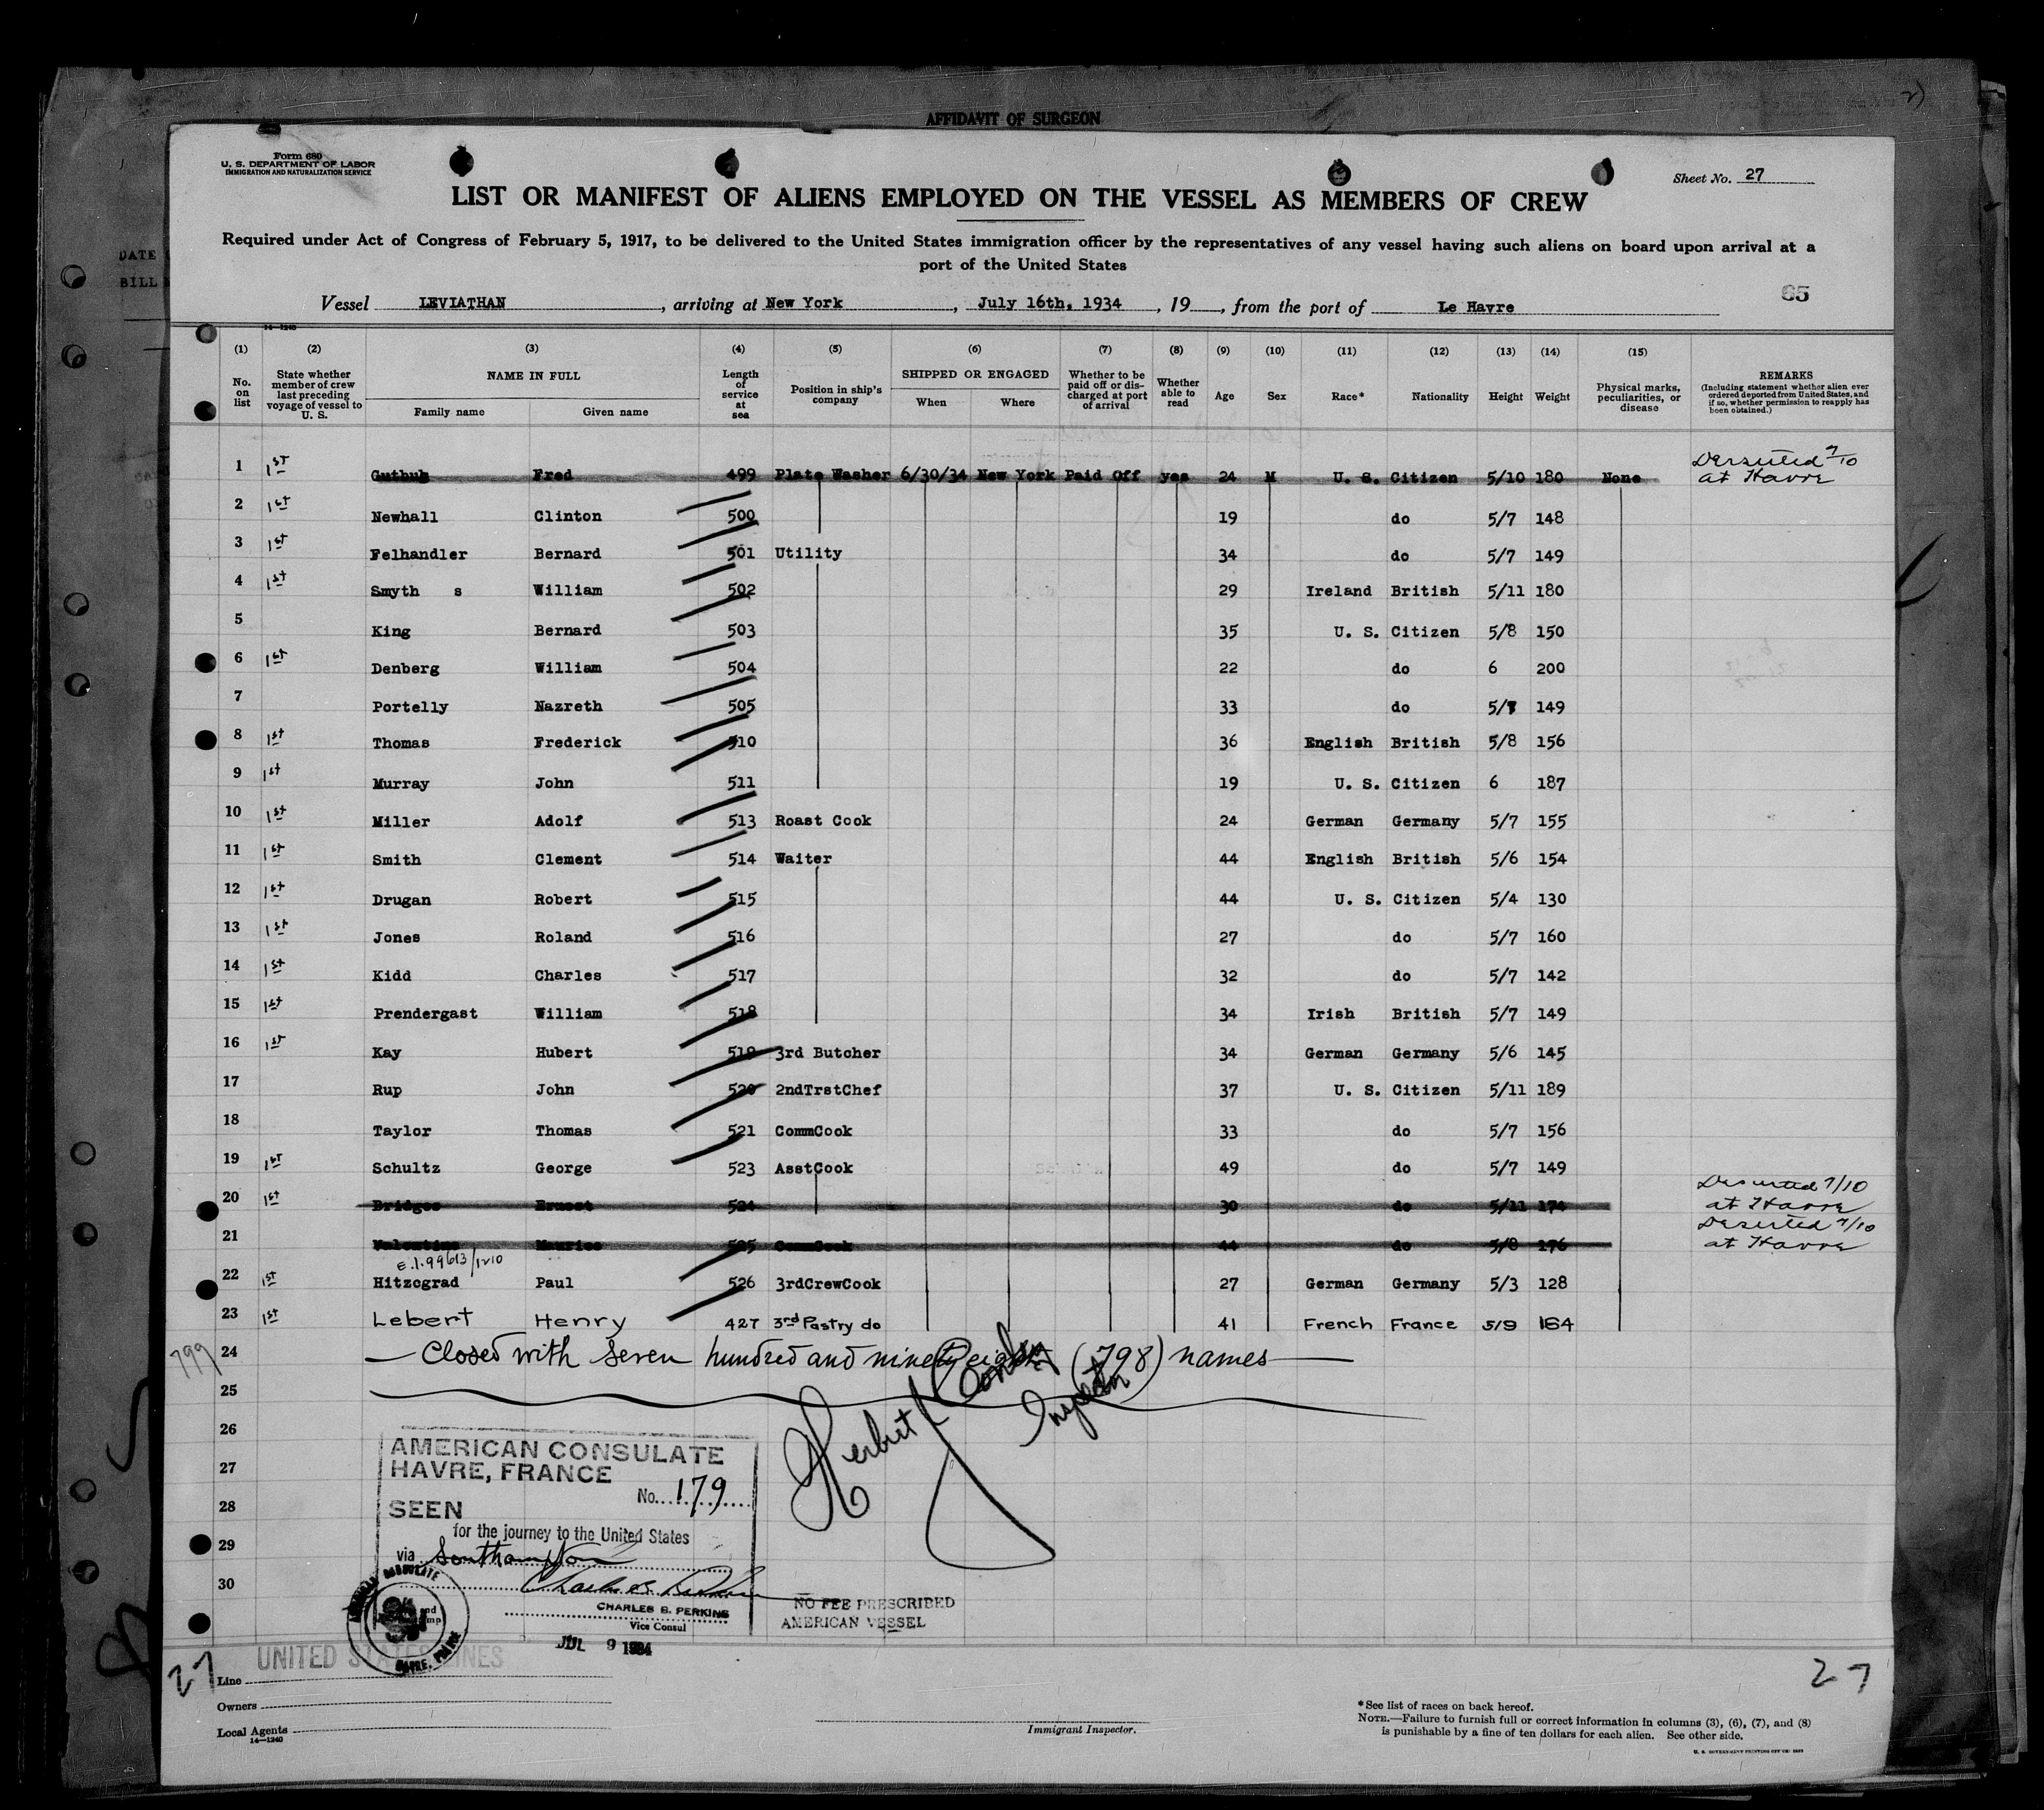 AFFIDAVIT OF SURGEON
Form 680
U. S. DEPARTMENT OF LABOR
IMMIGRATION AND NATURALIZATION SERVICE
Sheet No. 27
LIST OR MANIFEST OF ALIENS EMPLOYED ON THE VESSEL AS MEMBERS OF CREW
Required under Act of Congress of February 5, 1917, to be delivered to the United States immigration officer by the representatives of any vessel having such aliens on board upon arrival at a
port of the United States
65
Vessel LEVIATHAN, arriving at New York, July 16th, 1934, 19, from the port of Le Havre
14-1240
(1) (2) (3) (4) (5) (6) (7) (8) (9) (10) (11) (12) (13) (14) (15)
No. on list
State whether member of crew last preceding voyage of vessel to U. S.
NAME IN FULL
Family name Given name
Length of service at sea
Position in ship's company
SHIPPED OR ENGAGED
When Where
Whether to be paid off or discharged at port of arrival
Whether able to read
Age Sex Race* Nationality Height Weight
Physical marks, peculiarities, or disease
REMARKS
(Including statement whether alien ever ordered deported from United States, and if so, whether permission to reapply has been obtained.)
1 1st Guthub Fred 499 Plate Washer 6/30/34 New York Paid Off yes 24 M U. S. Citizen 5/10 180 None Deserted 7/10 at Havre
2 1st Newhall Clinton 500 19 do 5/7 148
3 1st Felhandler Bernard 501 Utility 34 do 5/7 149
4 1st Smyth s William 502 29 Ireland British 5/11 180
5 King Bernard 503 35 U. S. Citizen 5/8 150
6 1st Denberg William 504 22 do 6 200
7 Portelly Nazreth 505 33 do 5/7 149
8 1st Thomas Frederick 510 36 English British 5/8 156
9 1st Murray John 511 19 U. S. Citizen 6 187
10 1st Miller Adolf 513 Roast Cook 24 German Germany 5/7 155
11 1st Smith Clement 514 Waiter 44 English British 5/6 154
12 1st Drugan Robert 515 44 U. S. Citizen 5/4 130
13 1st Jones Roland 516 27 do 5/7 160
14 1st Kidd Charles 517 32 do 5/7 142
15 1st Prendergast William 518 34 Irish British 5/7 149
16 1st Kay Hubert 519 3rd Butcher 34 German Germany 5/6 145
17 Rup John 520 2ndTrstChef 37 U. S. Citizen 5/11 189
18 Taylor Thomas 521 CommCook 33 do 5/7 156
19 1st Schultz George 523 AsstCook 49 do 5/7 149
20 1st Bridges Ernest 524 30 do 5/11 174 Deserted 7/10 at Havre
21 Valentine Maurice 525 CommCook 44 do 5/8 176 Deserted 7/10 at Havre
E.1.99613/1210
22 1st Hitzcgrad Paul 526 3rdCrewCook 27 German Germany 5/3 128
23 1st Lebert Henry 427 3rd Pastry do 41 French France 5/9 164
799 24 Closed with seven hundred and ninety eight (798) names
25
26
27
28
29
30
Herbert Conley
Inspector
AMERICAN CONSULATE
HAVRE, FRANCE
No. 179
SEEN
for the journey to the United States
via Southampton
CHARLES B. PERKINS
Vice Consul
JUL 9 1934
NO FEE PRESCRIBED
AMERICAN VESSEL
UNITED STATES LINES
27
27
Line
Owners
Local Agents
14-1240
Immigrant Inspector.
*See list of races on back hereof.
NOTE.—Failure to furnish full or correct information in columns (3), (6), (7), and (8)
is punishable by a fine of ten dollars for each alien. See other side.